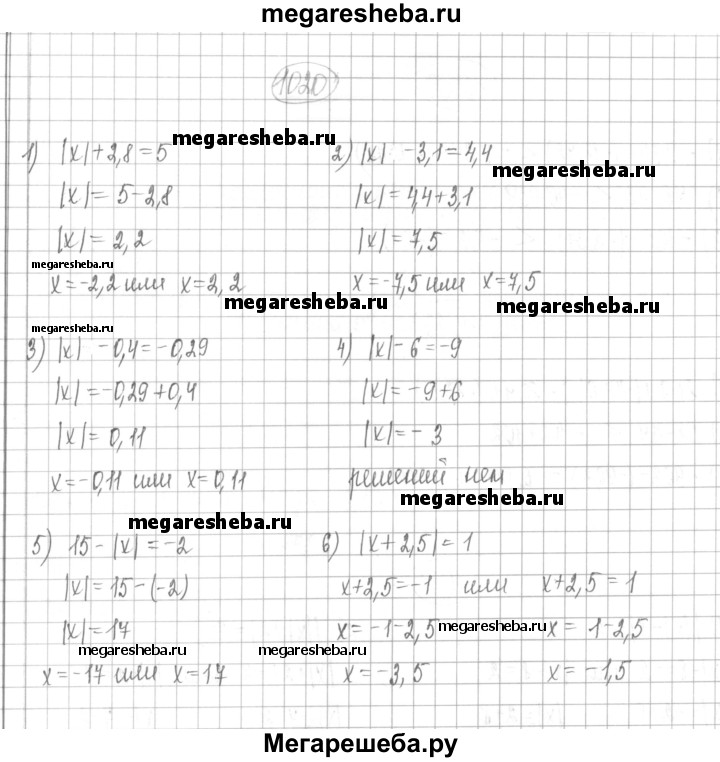 megaresheba.ru
1020
1) |x|+2,8=5 megaresheba.ru 2) |x| -3,1=4,4
megaresheba.ru
|x|=5-2,8 |x|=4,4+3,1
|x|=2,2 |x|=7,5
megaresheba.ru
x=-2,2 или x=2,2 x=-7,5 или x=7,5
megaresheba.ru megaresheba.ru
megaresheba.ru
3) |x| -0,4=-0,29 4) |x|-6=-9
|x|=-0,29+0,4 |x|=-9+6
|x|=0,11 |x|=-3
x=-0,11 или x=0,11 решений нет
megaresheba.ru
megaresheba.ru
5) 15-|x|=-2 6) |x+2,5|=1
|x|=15-(-2) x+2,5=-1 или x+2,5=1
|x|=17 x=-1-2,5 megaresheba.ru x= 1-2,5
megaresheba.ru megaresheba.ru
x=-17 или x=17 x=-3,5 x=-1,5
Мегарешеба.ру